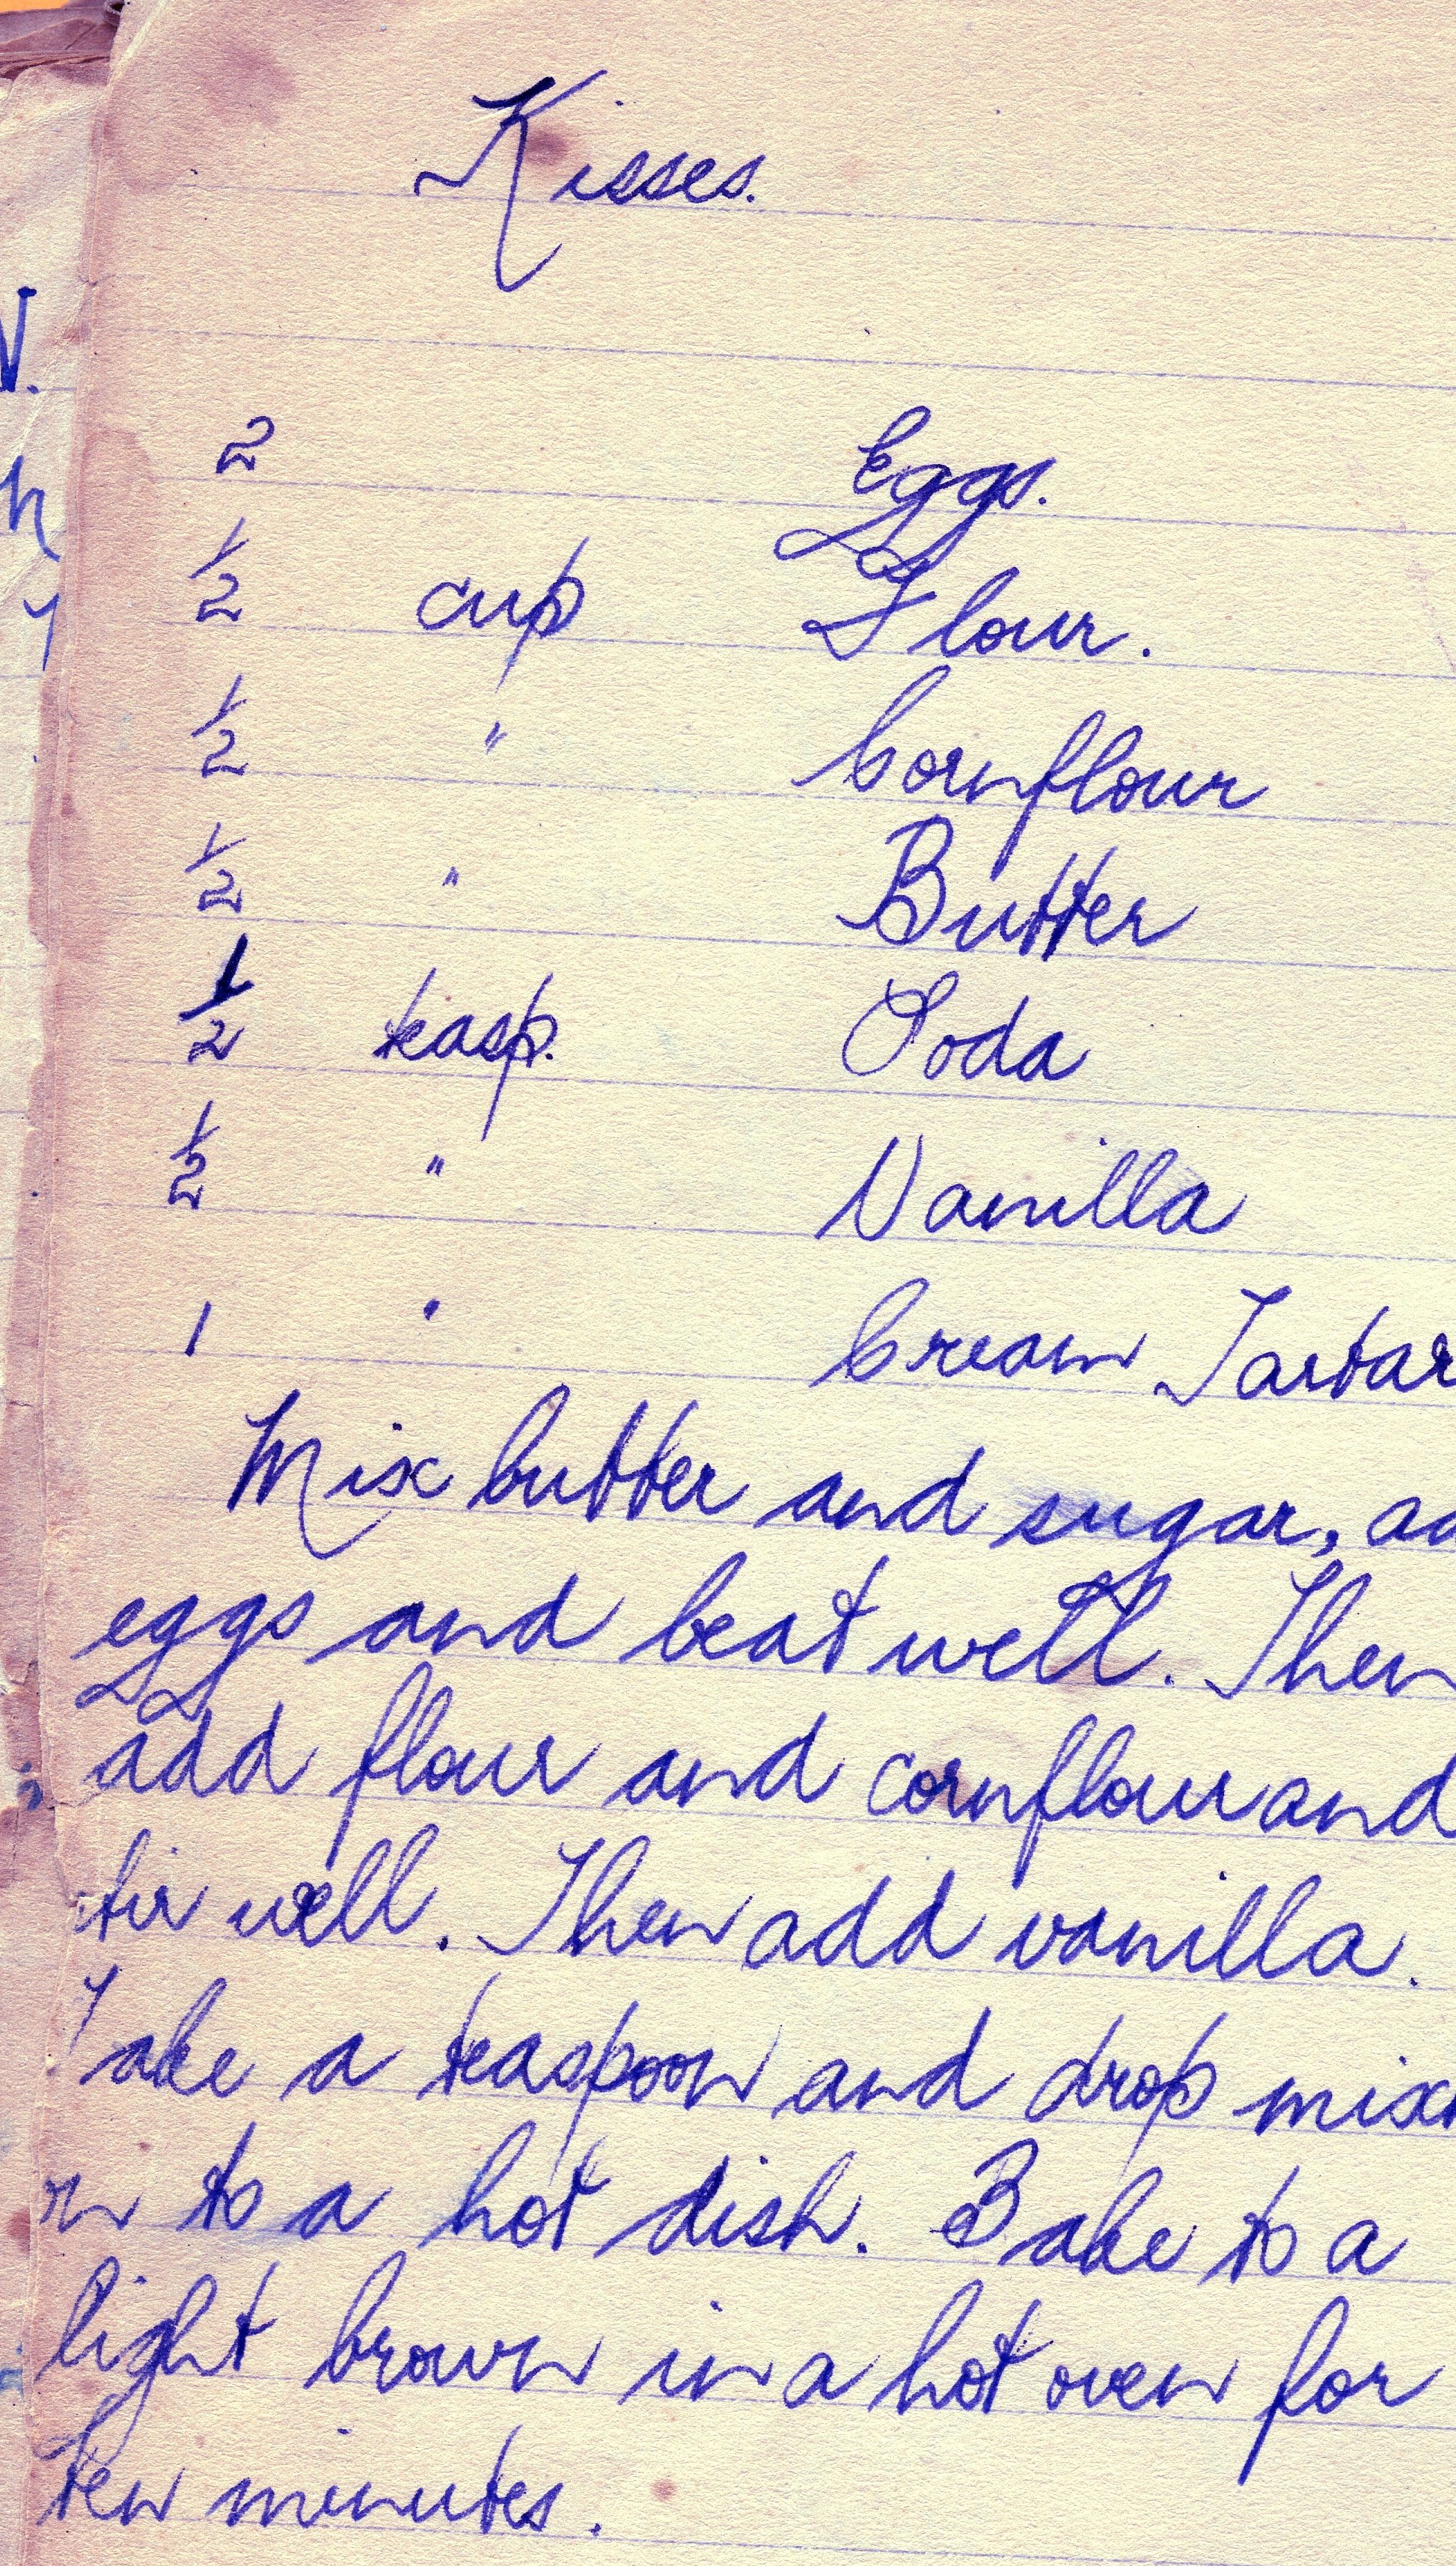 Kisses.
2 Eggs.
1/2 cup Flour.
1/2 " Cornflour
1/2 " Butter
1/2 teasp. Soda
1/2 " Vanilla
1 " Cream Tartar
Mix butter and sugar,
eggs and beat well. Then
add flour and cornflour and
tir well. Then add vanilla.
Take a teaspoon and drop
to a hot dish. Bake to a
light brown in a hot oven for
ten minutes.